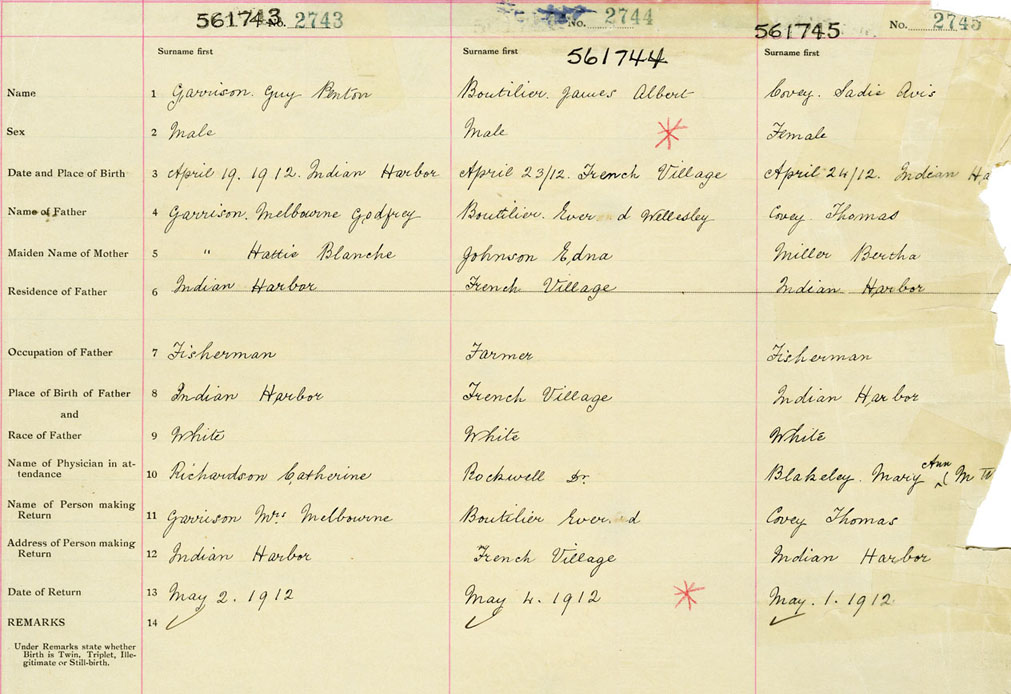 561743 No. 2743 No. 2744 561745 No. 2745
Surname first Surname first 561744 Surname first
Name 1 Garrison. Guy Penton Boutilier. James Albert Covey. Sadie Avis
Sex 2 Male Male Female
Date and Place of Birth 3 April 19. 1912. Indian Harbor April 23/12. French Village April 24/12. Indian Ha
Name of Father 4 Garrison. Melbourne Godfrey Boutilier. Ever d Wellesley Covey Thomas
Maiden Name of Mother 5 " Hattie Blanche Johnson Edna Miller Bertha
Residence of Father 6 Indian Harbor French Village Indian Harbor
Occupation of Father 7 Fisherman Farmer Fisherman
Place of Birth of Father 8 Indian Harbor French Village Indian Harbor
and
Race of Father 9 White White White
Name of Physician in at-
tendance 10 Richardson Catherine Rockwell Dr. Blakeley. Mary Ann M
Name of Person making
Return 11 Garrison Mrs. Melbourne Boutilier Ever d Covey Thomas
Address of Person making
Return 12 Indian Harbor French Village Indian Harbor
Date of Return 13 May 2. 1912 May 4. 1912 May. 1. 1912
REMARKS 14
Under Remarks state whether
Birth is Twin, Triplet, Ille-
gitimate or Still-birth.